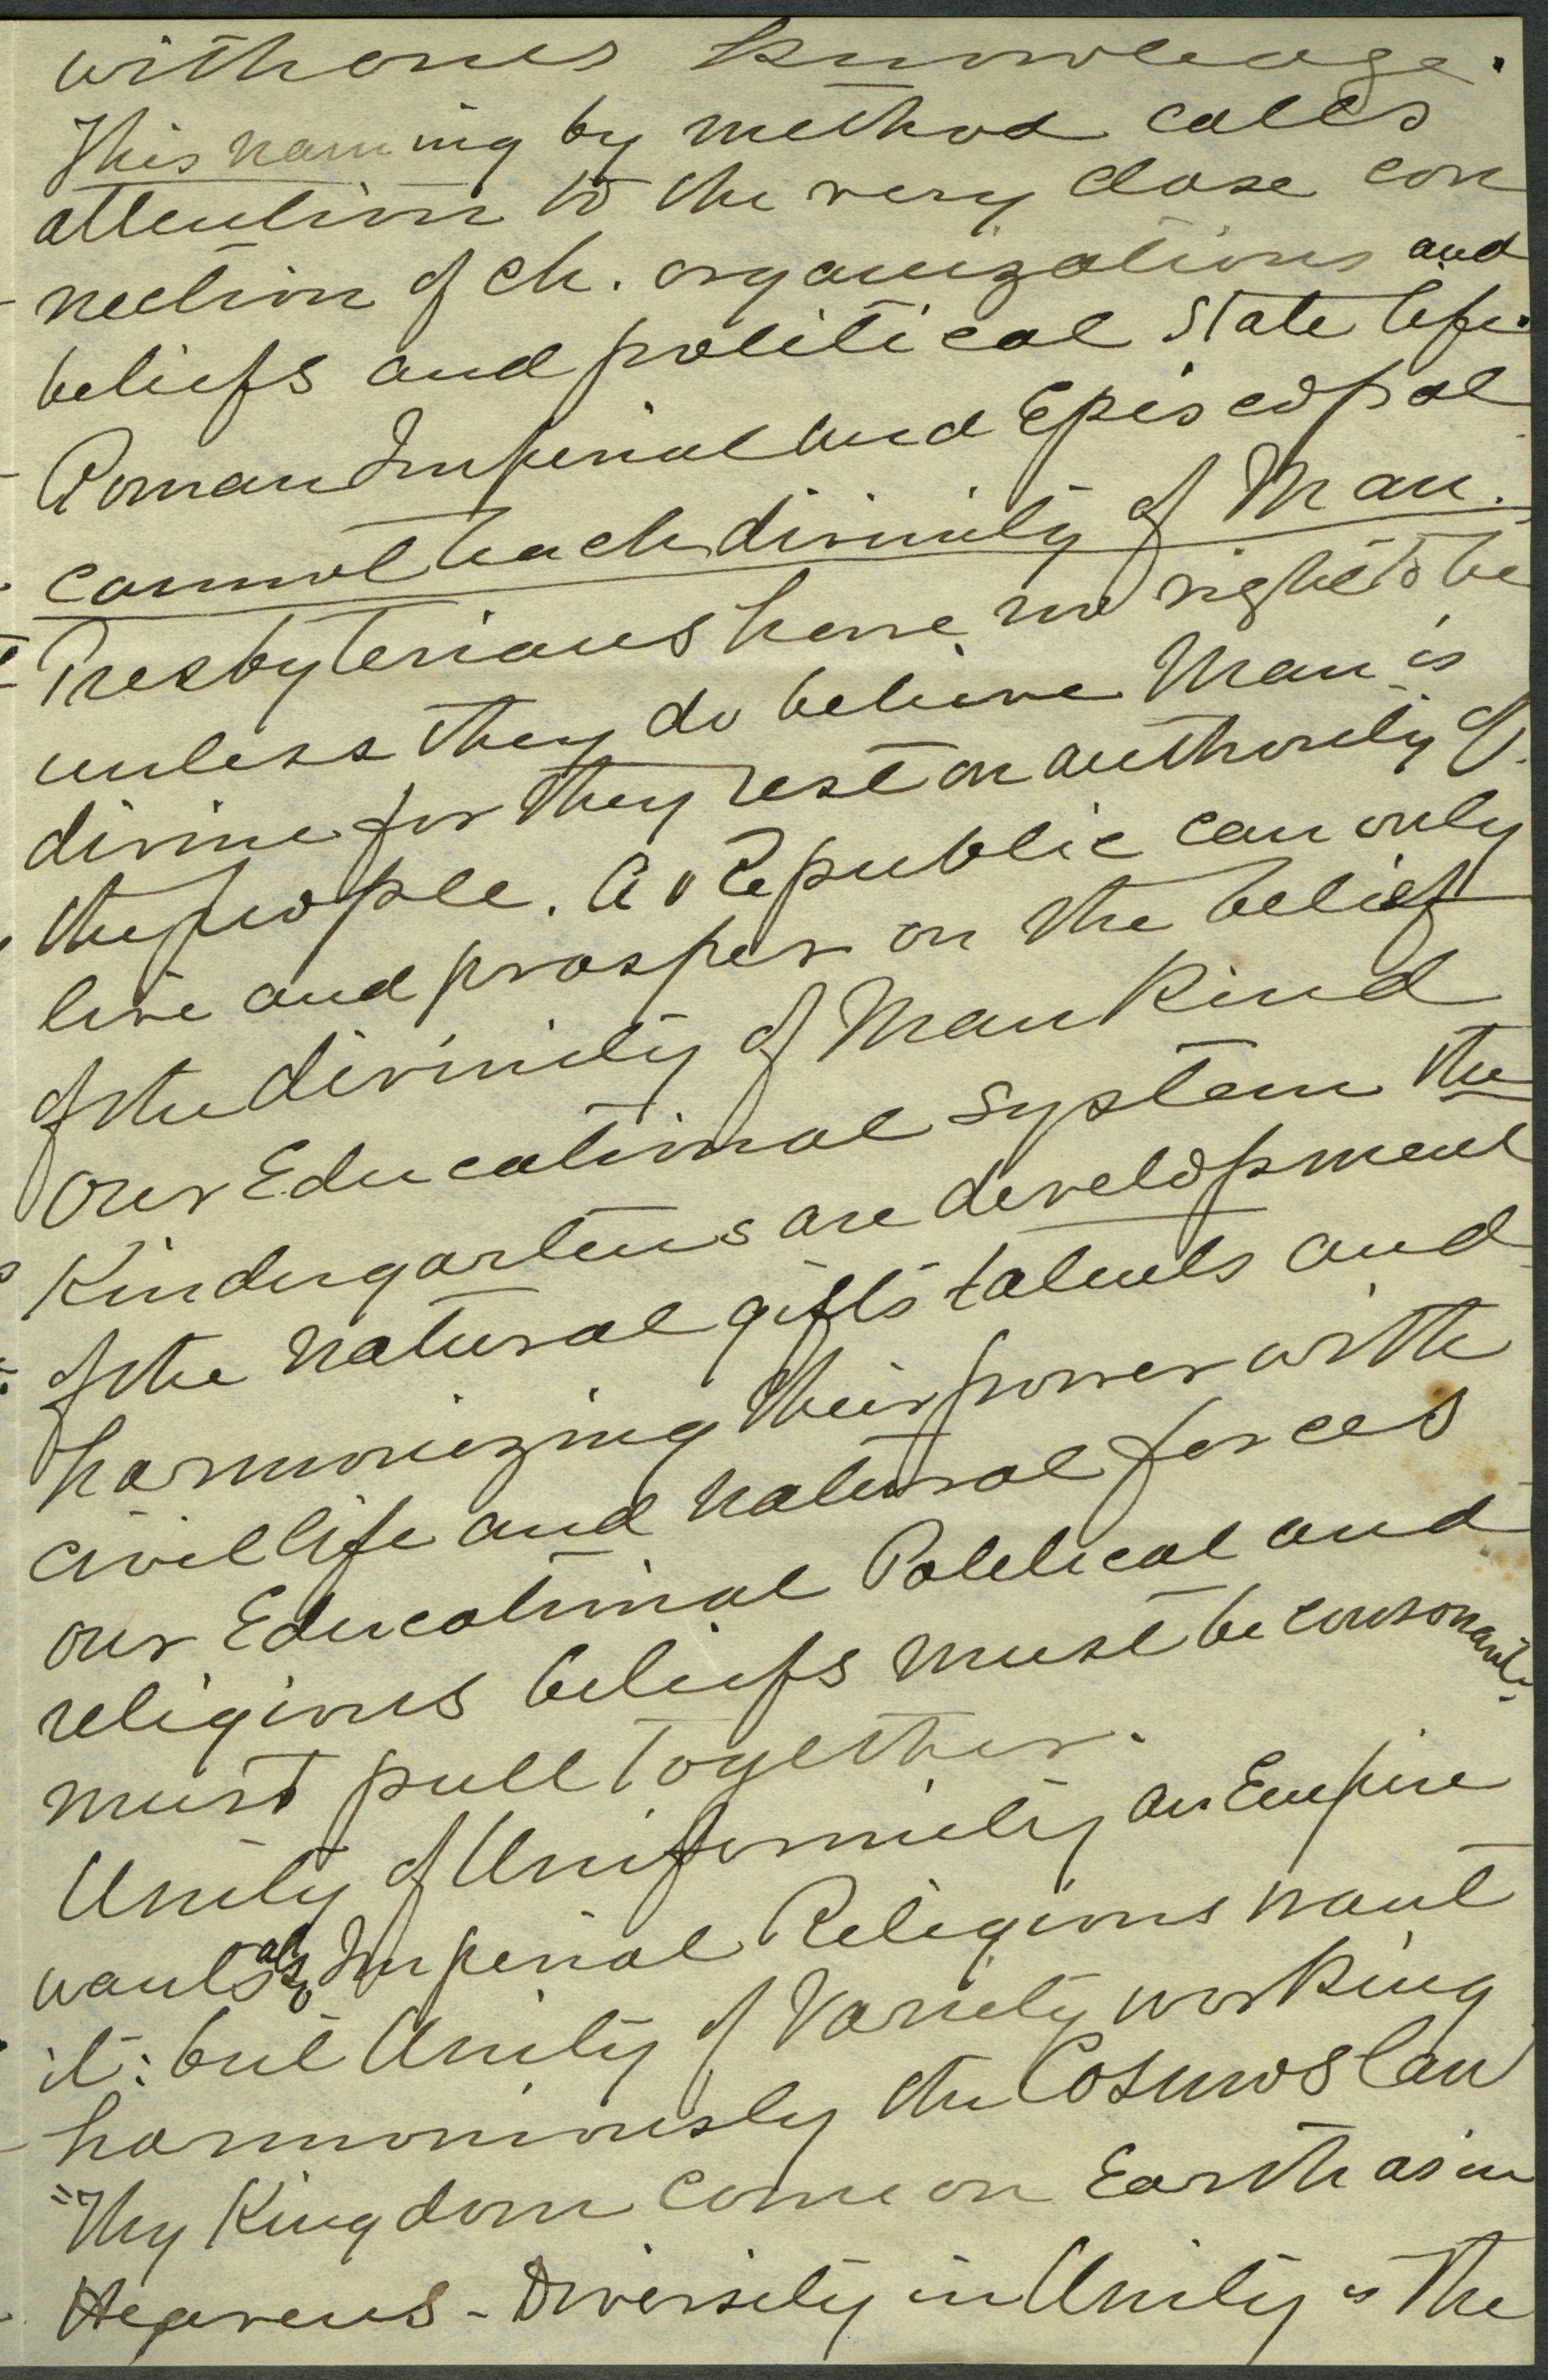 with ones knowledge.
This naming by method calls
attention to the very close con
nection of ch. organizations and
beliefs and political State life.
Roman Imperial and Episcopal
cannot teach divinity of Man.
Presbyterians have no right to be
unless they do believe Man is
divine for they rest on authority of
the people. A Republic can only
live and prosper on the belief
of the divinity of Man Kind
Our Educational system the
Kindergartens are development
of the natural gifts talents and
harmonizing their power with
civil life and natural forces
our Educational Political and
religious beliefs must be consonant.
must pull together.
Unity of Uniformity an Empire
wants also Imperial Religions want
it: but Unity of Variety working
harmoniously the Cosmos law
"Thy Kingdom come on Earth as in
Heavens - Diversity in Unity is the